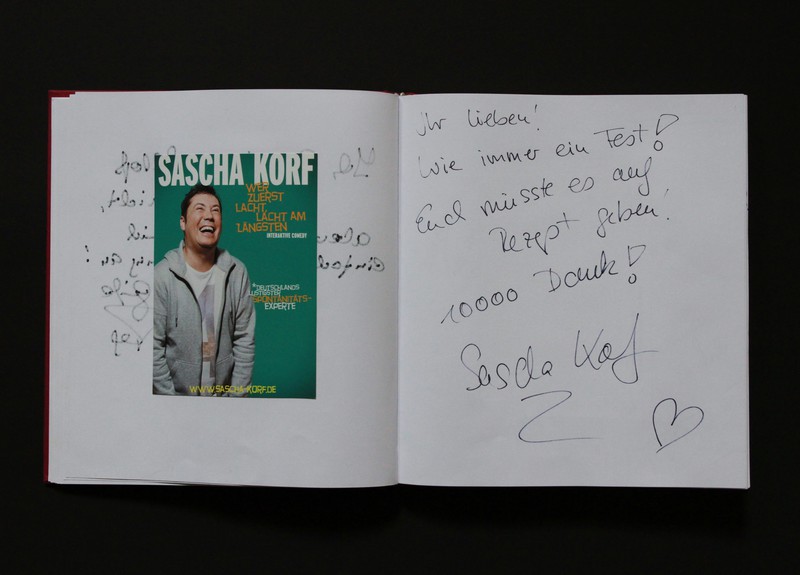 SASCHA KORF
WER
ZUERST
LACHT,
LACHT AM
LÄNGSTEN
INTERAKTIVE COMEDY
*DEUTSCHLANDS
LUSTIGSTER
SPONTANITÄTS-
EXPERTE
WWW.SASCHA-KORF.DE
Ihr Lieben!
Wie immer ein Fest!
Euch müsste es auf
Rezept geben!
10000 Dank!
Sascha Korf